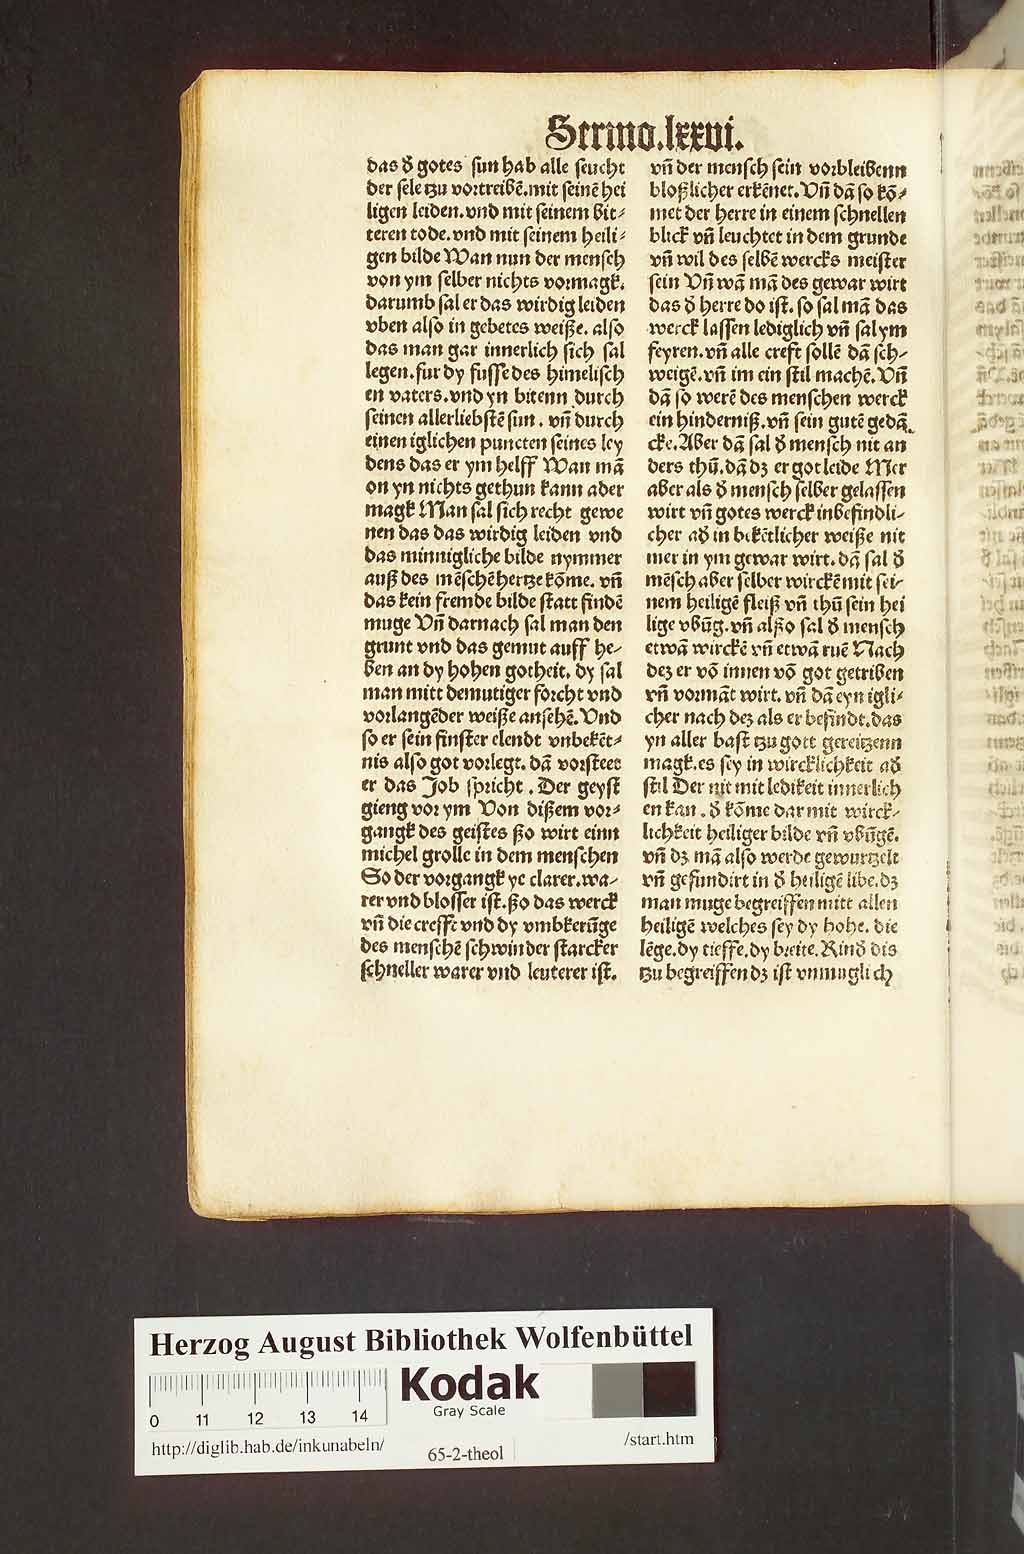 Sermo.lxxvi.
das d̕ gotes sun hab alle seucht
der sele tzu vortreibē.mit seinē hei
ligen leiden.vnd mit seinem bit⸗
teren tode.vnd mit seinem heili⸗
gen bilde Wan nun der mensch
von ym selber nichts vormagk.
darumb sal er das wirdig leiden
vben also in gebetes weiße. also
das man gar innerlich sich sal
legen.fur dy fusse des himelisch
en vaters.vnd yn bitenn durch
seinen allerliebstē sun. vn̄ durch
einen iglichen puncten seines ley
dens das er ym helff Wan mā
on yn nichts gethun kann ader
magk Man sal sich recht gewe
nen das das wirdig leiden vnd
das minnigliche bilde nymmer
auß des mēschē hertze kōme. vn̄
das kein fremde bilde statt findē
muge Vn̄ darnach sal man den
grunt vnd das gemut auff he⸗
ben an dy hohen gotheit. dy sal
man mitt demutiger forcht vnd
vorlangēder weiße ansehē. Vnd
so er sein finster elendt vnbekēt⸗
nis also got vorlegt. dā vorsteet
er das Job spricht. Der geyst
gieng vor ym Von dißem vor⸗
gangk des geistes ßo wirt einn
michel grolle in dem menschen
So der vorgangk ye clarer.wa⸗
rer vnd blosser ist.ßo das werck
vn̄ die creffc vnd dy vmbkerūge
des menschē schwinder starcker
schneller warer vnd leuterer ist.
vn̄ der mensch sein vorbleibenn
bloßlicher erkēnet. Vn̄ dā so kō⸗
met der herre in einem schnellen
blick vn̄ leuchtet in dem grunde
vn̄ wil des selbē wercks meister
sein Vn̄ wā mā des gewar wirt
das d̕ herre do ist. so sal mā das
werck lassen lediglich vn̄ sal ym
feyren.vn̄ alle creft sollē dā sch⸗
weigē.vn̄ im ein stil machē. Vn̄
dā so werē des menschen werck
ein hinderniß.vn̄ sein gutē gedā⸗
cke. Aber dā sal d̕ mensch nit an
ders thū.dā dz er got leide Mer
aber als d̕ mensch selber gelassen
wirt vn̄ gotes werck inbefindli⸗
cher ad̕ in bekētlicher weiße nit
mer in ym gewar wirt. dā sal d̕
mēsch aber selber wirckē mit sei⸗
nem heiligē fleiß vn̄ thū sein hei
lige vbūg.vn̄ alßo sal d̕ mensch
etwā wirckē vn̄ etwā ruē Nach
dez er vō innen vō got getriben
vn̄ vormāt wirt. vn̄ dā eyn igli⸗
cher nach dez als er befindt.das
yn aller bast tzu gott gereitzenn
magk.es sey in wircklichkeit ad̕
stil Der nit mit ledikeit innerlich
en kan. d̕ kōme dar mit wirck⸗
lichkeit heiliger bilde vn̄ vbūgē.
vn̄ dz mā also werde gewurtzelt
vn̄ gefundirt in d̕ heiligē libe.dz
man muge begreiffen mitt allen
heiligē welches sey dy hohe. die
lēge.dy tieffe.dy breite. Kind̕ dis
tzu begreiffen dz ist vnmuglich
Herzog August Bibliothek Wolfenbüttel
Kodak
Gray Scale
0 11 12 13 14
http://diglib.hab.de/inkunabeln/
65-2-theol
/start.htm